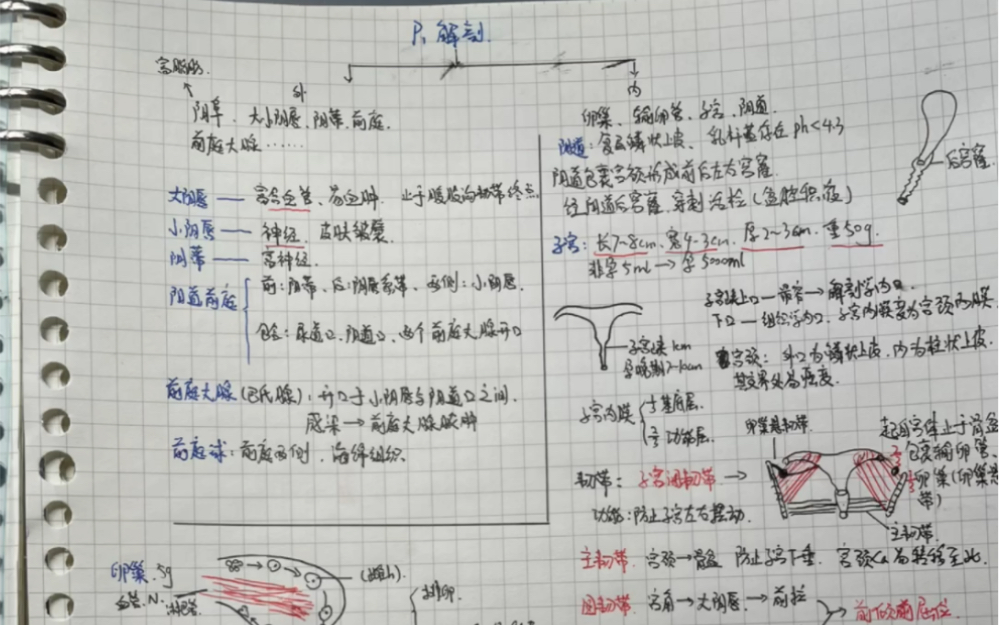 P1 解剖
外
富脂肪
阴阜、大小阴唇、阴蒂、前庭、
前庭大腺……
大阴唇 — 富含血管、易血肿 止于
小阴唇 — 神经、
阴蒂 — 富神经.
阴道前庭
前:阴蒂、后:阴唇系带、两侧:小阴唇.
包含:尿道口、阴道口、两个前庭大腺开口
前庭大腺(巴氏腺):开口于小阴唇与阴道口之间.
感染→前庭大腺脓肿
前庭球:前庭两侧、海绵组织.
卵巢.5g
血管.N.淋巴管.
排卵.
内
卵巢、输卵管、子宫、阴道
阴道:复层鳞状上皮、乳杆菌 ph<4.5
阴道包裹宫颈形成前后左右宫窿.
经阴道后宫窿、穿刺活检(盆腔积液)
后宫窿
子宫:长7~8cm.宽4-5cm.厚2~3cm.重50g.
非孕5ml→孕5000ml
子宫峡上口—最窄→解剖学内口.
下口—组织学内口.子宫内膜变为宫颈内膜
子宫峡1cm
孕晚期7-10cm
宫颈:外口为鳞状上皮、内为柱状上皮.
其交界处为癌变.
子宫内膜
1/3基底层.
2/3功能层.
韧带:子宫阔韧带→
功能:防止子宫左右摆动.
卵巢悬韧带
起自宫体止于骨盆
2/3包裹输卵管、
1/3卵巢(卵巢悬
带)
主韧带.
主韧带 宫颈→骨盆 防止子宫下垂 宫颈Ca易转移至此.
圆韧带 宫角→大阴唇→前拉
前倾前屈位